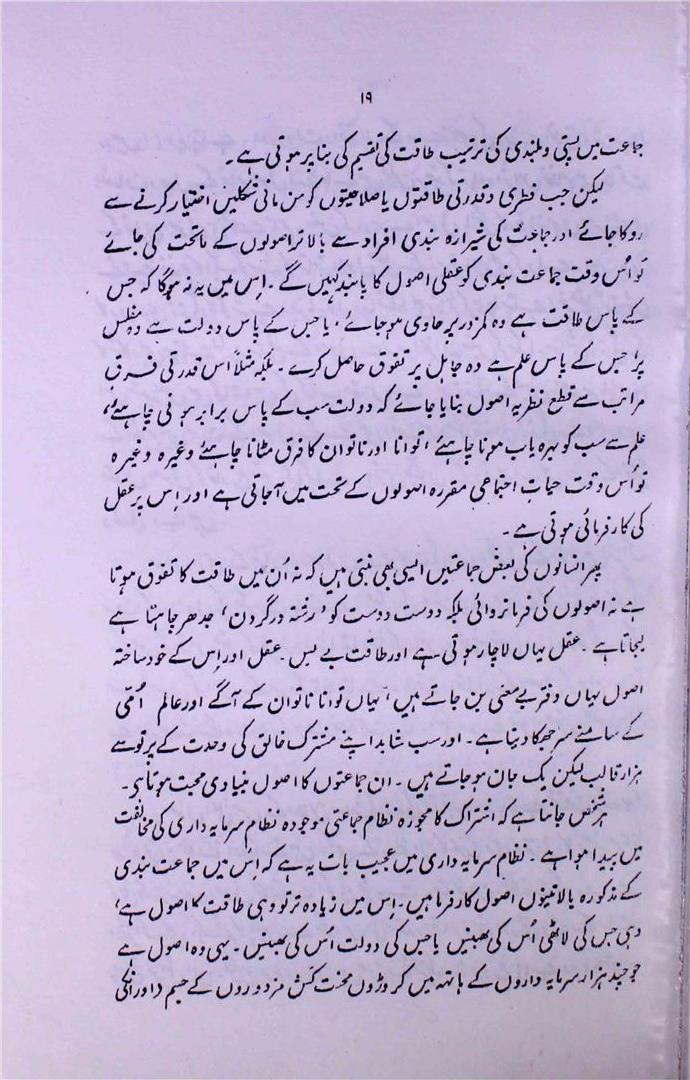 ۱۹
جماعت میں پستی و بلندی کی ترتیب طاقت کی تقسیم کی بنا پر ہوتی ہے۔
لیکن جب فطری و قدرتی طاقتوں یا صلاحیتوں کو من مانی شکلیں اختیار کرنے سے
روکا جائے اور جماعت کی شیرازہ بندی افراد سے بالاتر اصولوں کے ماتحت کی جائے
تو اُس وقت جماعت بندی کو عقلی اصول کا پابند کہیں گے۔ اِس میں یہ نہ ہوگا کہ جس
کے پاس طاقت ہے وہ کمزور پر حاوی ہو جائے، یا جس کے پاس دولت ہے وہ مفلس
پر، جس کے پاس علم ہے وہ جاہل پر تفوق حاصل کرے۔ بلکہ مثلاً اس قدرتی فرق
مراتب سے قطع نظر یہ اصول بنایا جائے کہ دولت سب کے پاس برابر ہونی چاہئے،
علم سے سب کو بہرہ یاب ہونا چاہئے، توانا اور ناتوان کا فرق مٹانا چاہئے وغیرہ وغیرہ
تو اُس وقت حیاتِ اجتماعی مقررہ اصولوں کے تحت میں آجاتی ہے اور اِس پر عقل
کی کارفرمائی ہوتی ہے۔
پھر انسانوں کی بعض جماعتیں ایسی بھی بنتی ہیں کہ نہ اُن میں طاقت کا تفوق ہوتا
ہے نہ اصولوں کی فرمانروائی بلکہ دوست دوست کو ’رشتہ در گردن‘ جدھر چاہتا ہے
لیجاتا ہے۔ عقل یہاں لاچار ہوتی ہے اور طاقت بے بس۔ عقل اور اِس کے خود ساختہ
اصول یہاں دفتر بے معنی بن جاتے ہیں، یہاں توانا ناتوان کے آگے اور عالم اُمّی
کے سامنے سر جھکا دیتا ہے۔ اور سب شاید اپنے مشترک خالق کی وحدت کے پرتو سے
ہزار قالب لیکن یک جان ہو جاتے ہیں۔ ان جماعتوں کا اصول بنیادی محبت ہوتا ہی۔
ہر شخص جانتا ہے کہ اشتراک کا مجوزہ نظام جماعتی موجودہ نظام سرمایہ داری کی مخالفت
میں پیدا ہوا ہے۔ نظام سرمایہ داری میں عجیب بات یہ ہے کہ اِس میں جماعت بندی
کے مذکورہ بالا تینوں اصول کارفرما ہیں۔ اِس میں زیادہ تر تو وہی طاقت کا اصول ہے،
وہی جس کی لاٹھی اُس کی بھینس یا جس کی دولت اُس کی بھینس۔ یہی وہ اصول ہے
جو چند ہزار سرمایہ داروں کے ہاتھ میں کروڑوں محنت کش مزدوروں کے جسم و اور انکی